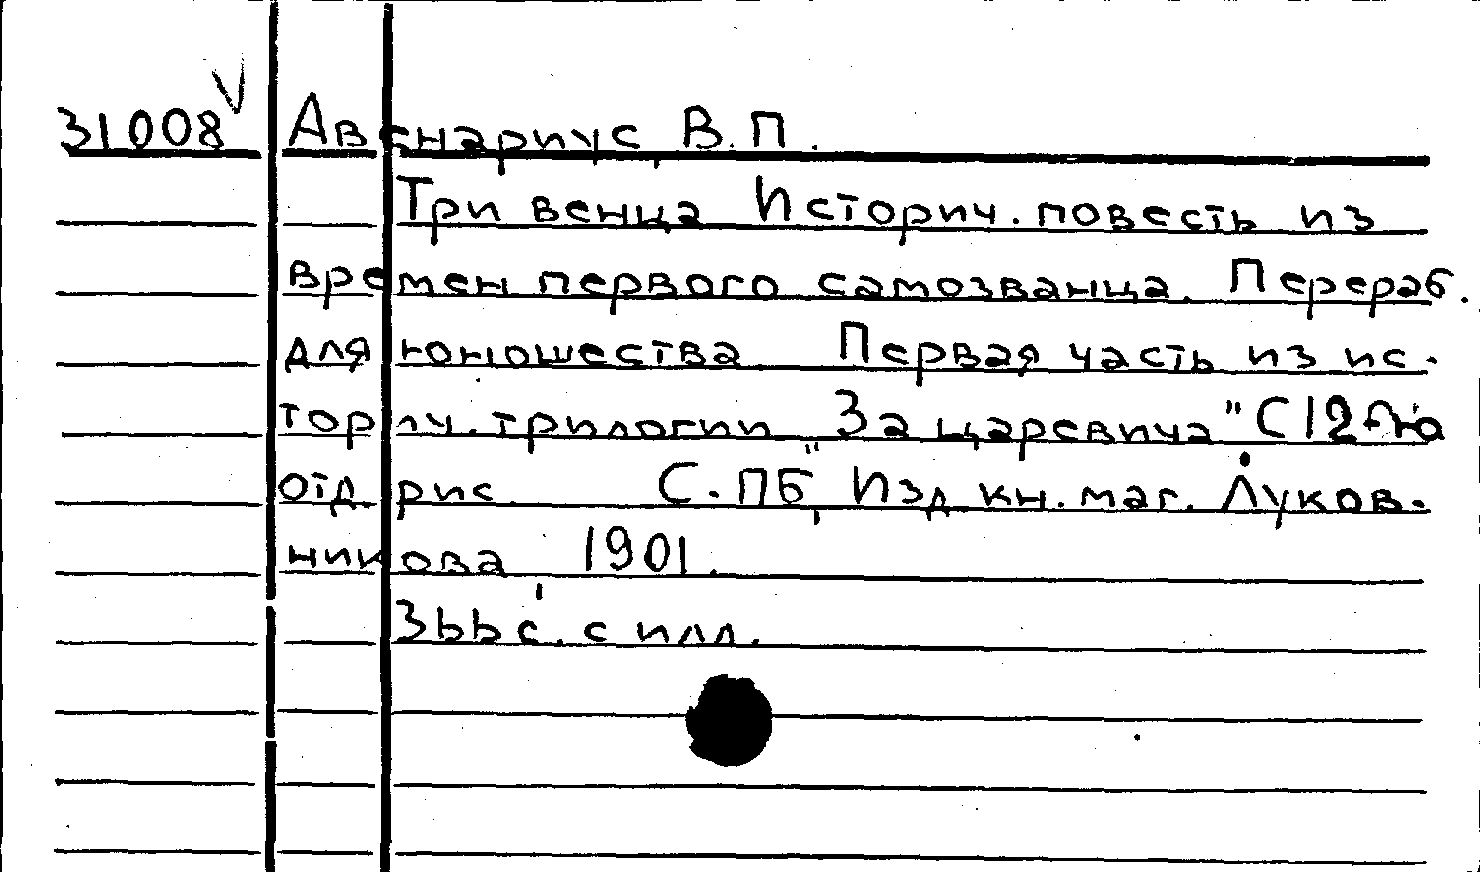 31008 Авенариус, В.П.
Три венца Историч. повесть из
времен первого самозванца. Перераб.
для юношества Первая часть из ис-
торич. трилогии „За царевича" С 12-ю
отд. рис. С.ПБ", Изд. кн. маг. Луков-
никова, 1901.
366 с. с илл.